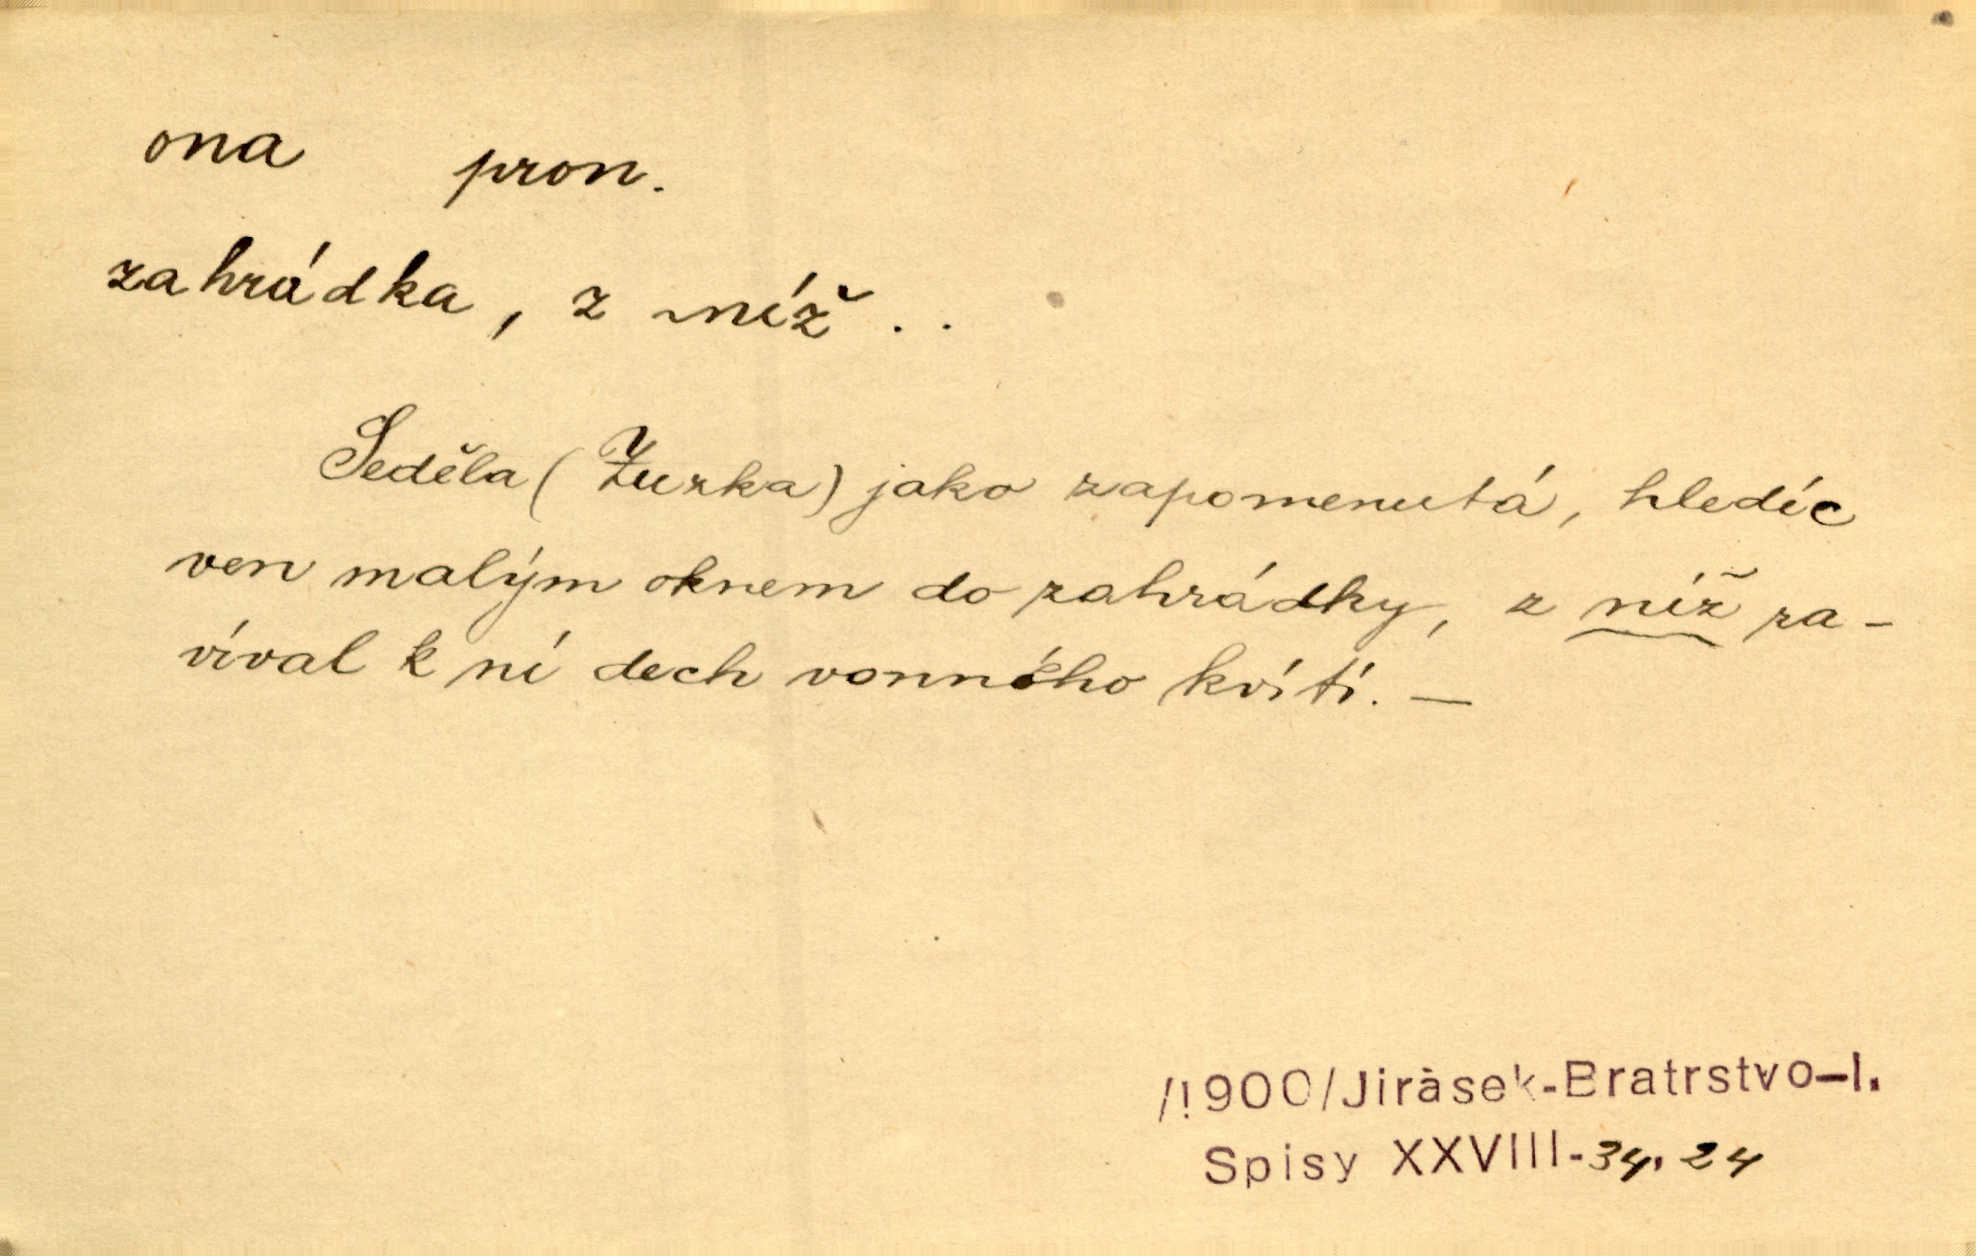 ona pron.
zahrádka, z níž ..
Seděla (Zuzka) jako zapomenutá, hledíc
ven malým oknem do zahrádky, z níž za-
víval k ní dech vonného kvítí. —
/1900/Jirásek-Bratrstvo-I.
Spisy XXVIII-34, 24